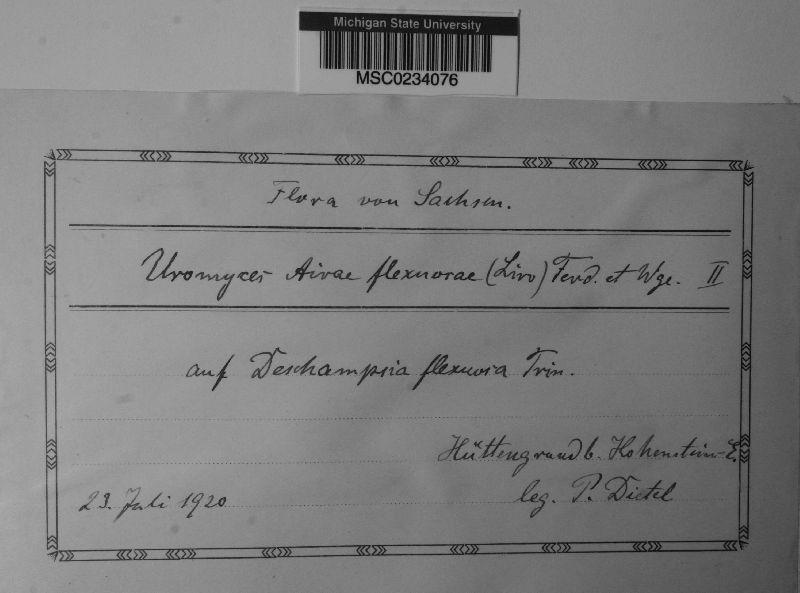 Michigan State University
MSC0234076
Flora von Sachsen.
Uromyces Airae flexuosae (Liro) Ferd. et Wge. II
auf Deschampsia flexuosa Trin.
Hüttengrund b. Hohenstein-E.
23. Juli 1920
leg. P. Dietel